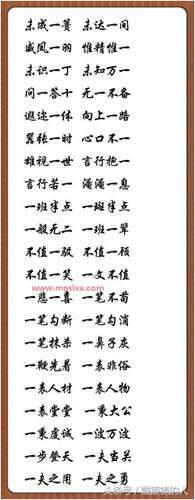 未成一篑 未达一间
威凤一羽 惟精惟一
未识一丁 未知万一
问一答十 无一不备
遐迩一体 向上一路
嚣张一时 心口不一
雄视一世 言行抱一
言行若一 淹淹一息
一班半点 一斑半点
一般无二 一班一辈
不值一驳 不值一顾
不值一笑 一文不值
www.moslxx.com
一悲一喜 一笔不苟
一笔勾断 一笔勾消
一笔抹杀 一鼻子灰
一鞭先着 一表非俗
一表人材 一表人物
一表堂堂 一秉大公
一秉虔诚 一波万波
一步登天 一夫当关
一夫之用 一夫之勇
头条号